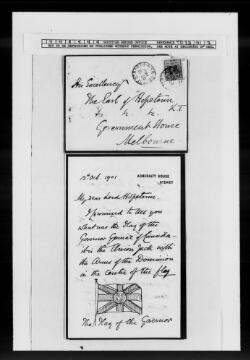 NOT TO BE REPRODUCED OR PUBLISHED WITHOUT PERMISSION.
His Excellency
The Earl of Hopetoun
K.T.
&c &c &c
Government House
Melbourne
ADMIRALTY HOUSE
SYDNEY
15th Oct. 1901
My dear Lord Hopetoun,
I promised to tell you
what was the Flag of the
Governor General of Canada
it is the Union Jack with
the Arms of the Dominion
in the centre of the flag
The Flag of the Governor